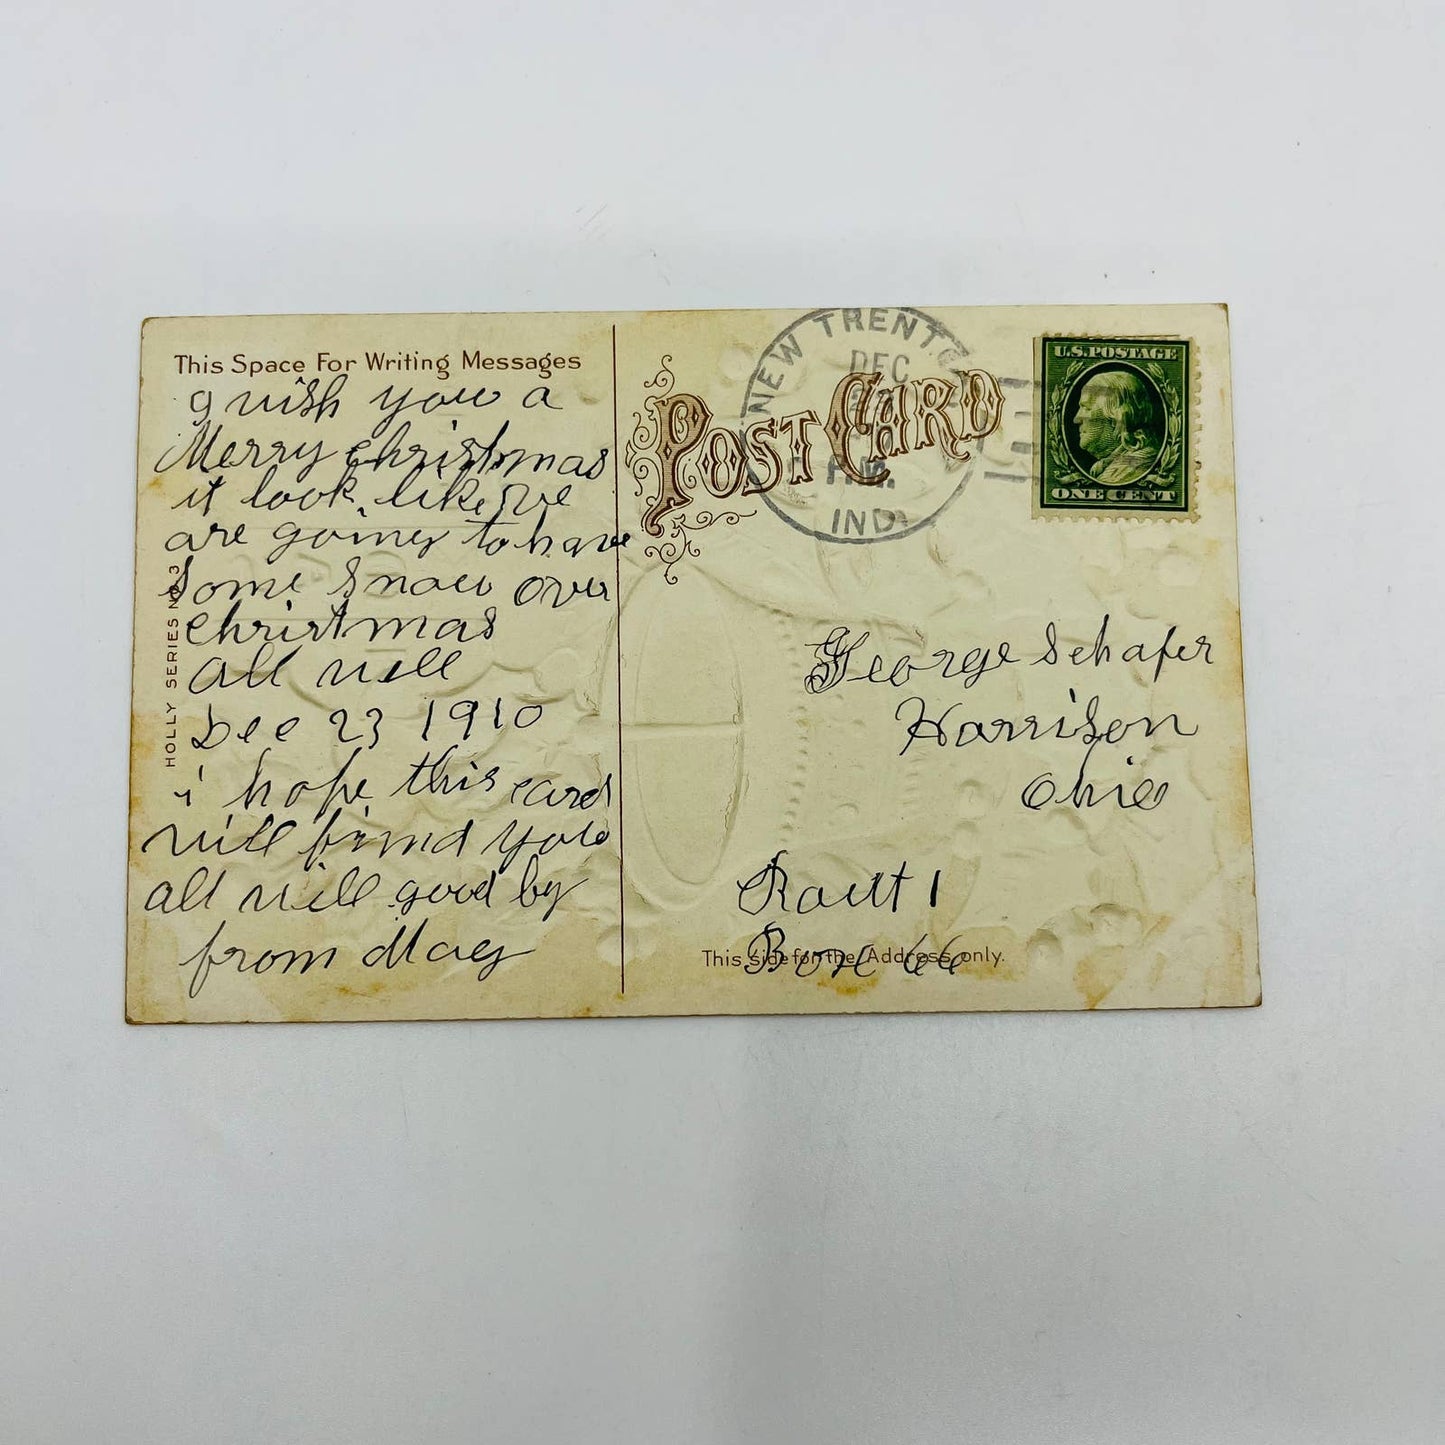 This Space For Writing Messages
I wish you a
Merry christmas
it look like we
are going to have
Some Snow over
christmas
all well
Dec 23 1910
i hope this card
will find you
all well good by
from May
HOLLY SERIES NO. 3
POST CARD
NEW TRENTON
DEC
P.M.
IND.
U.S. POSTAGE
ONE CENT
George Schafer
Harrison
Ohio
Rout 1
Box 66
This side for the Address only.